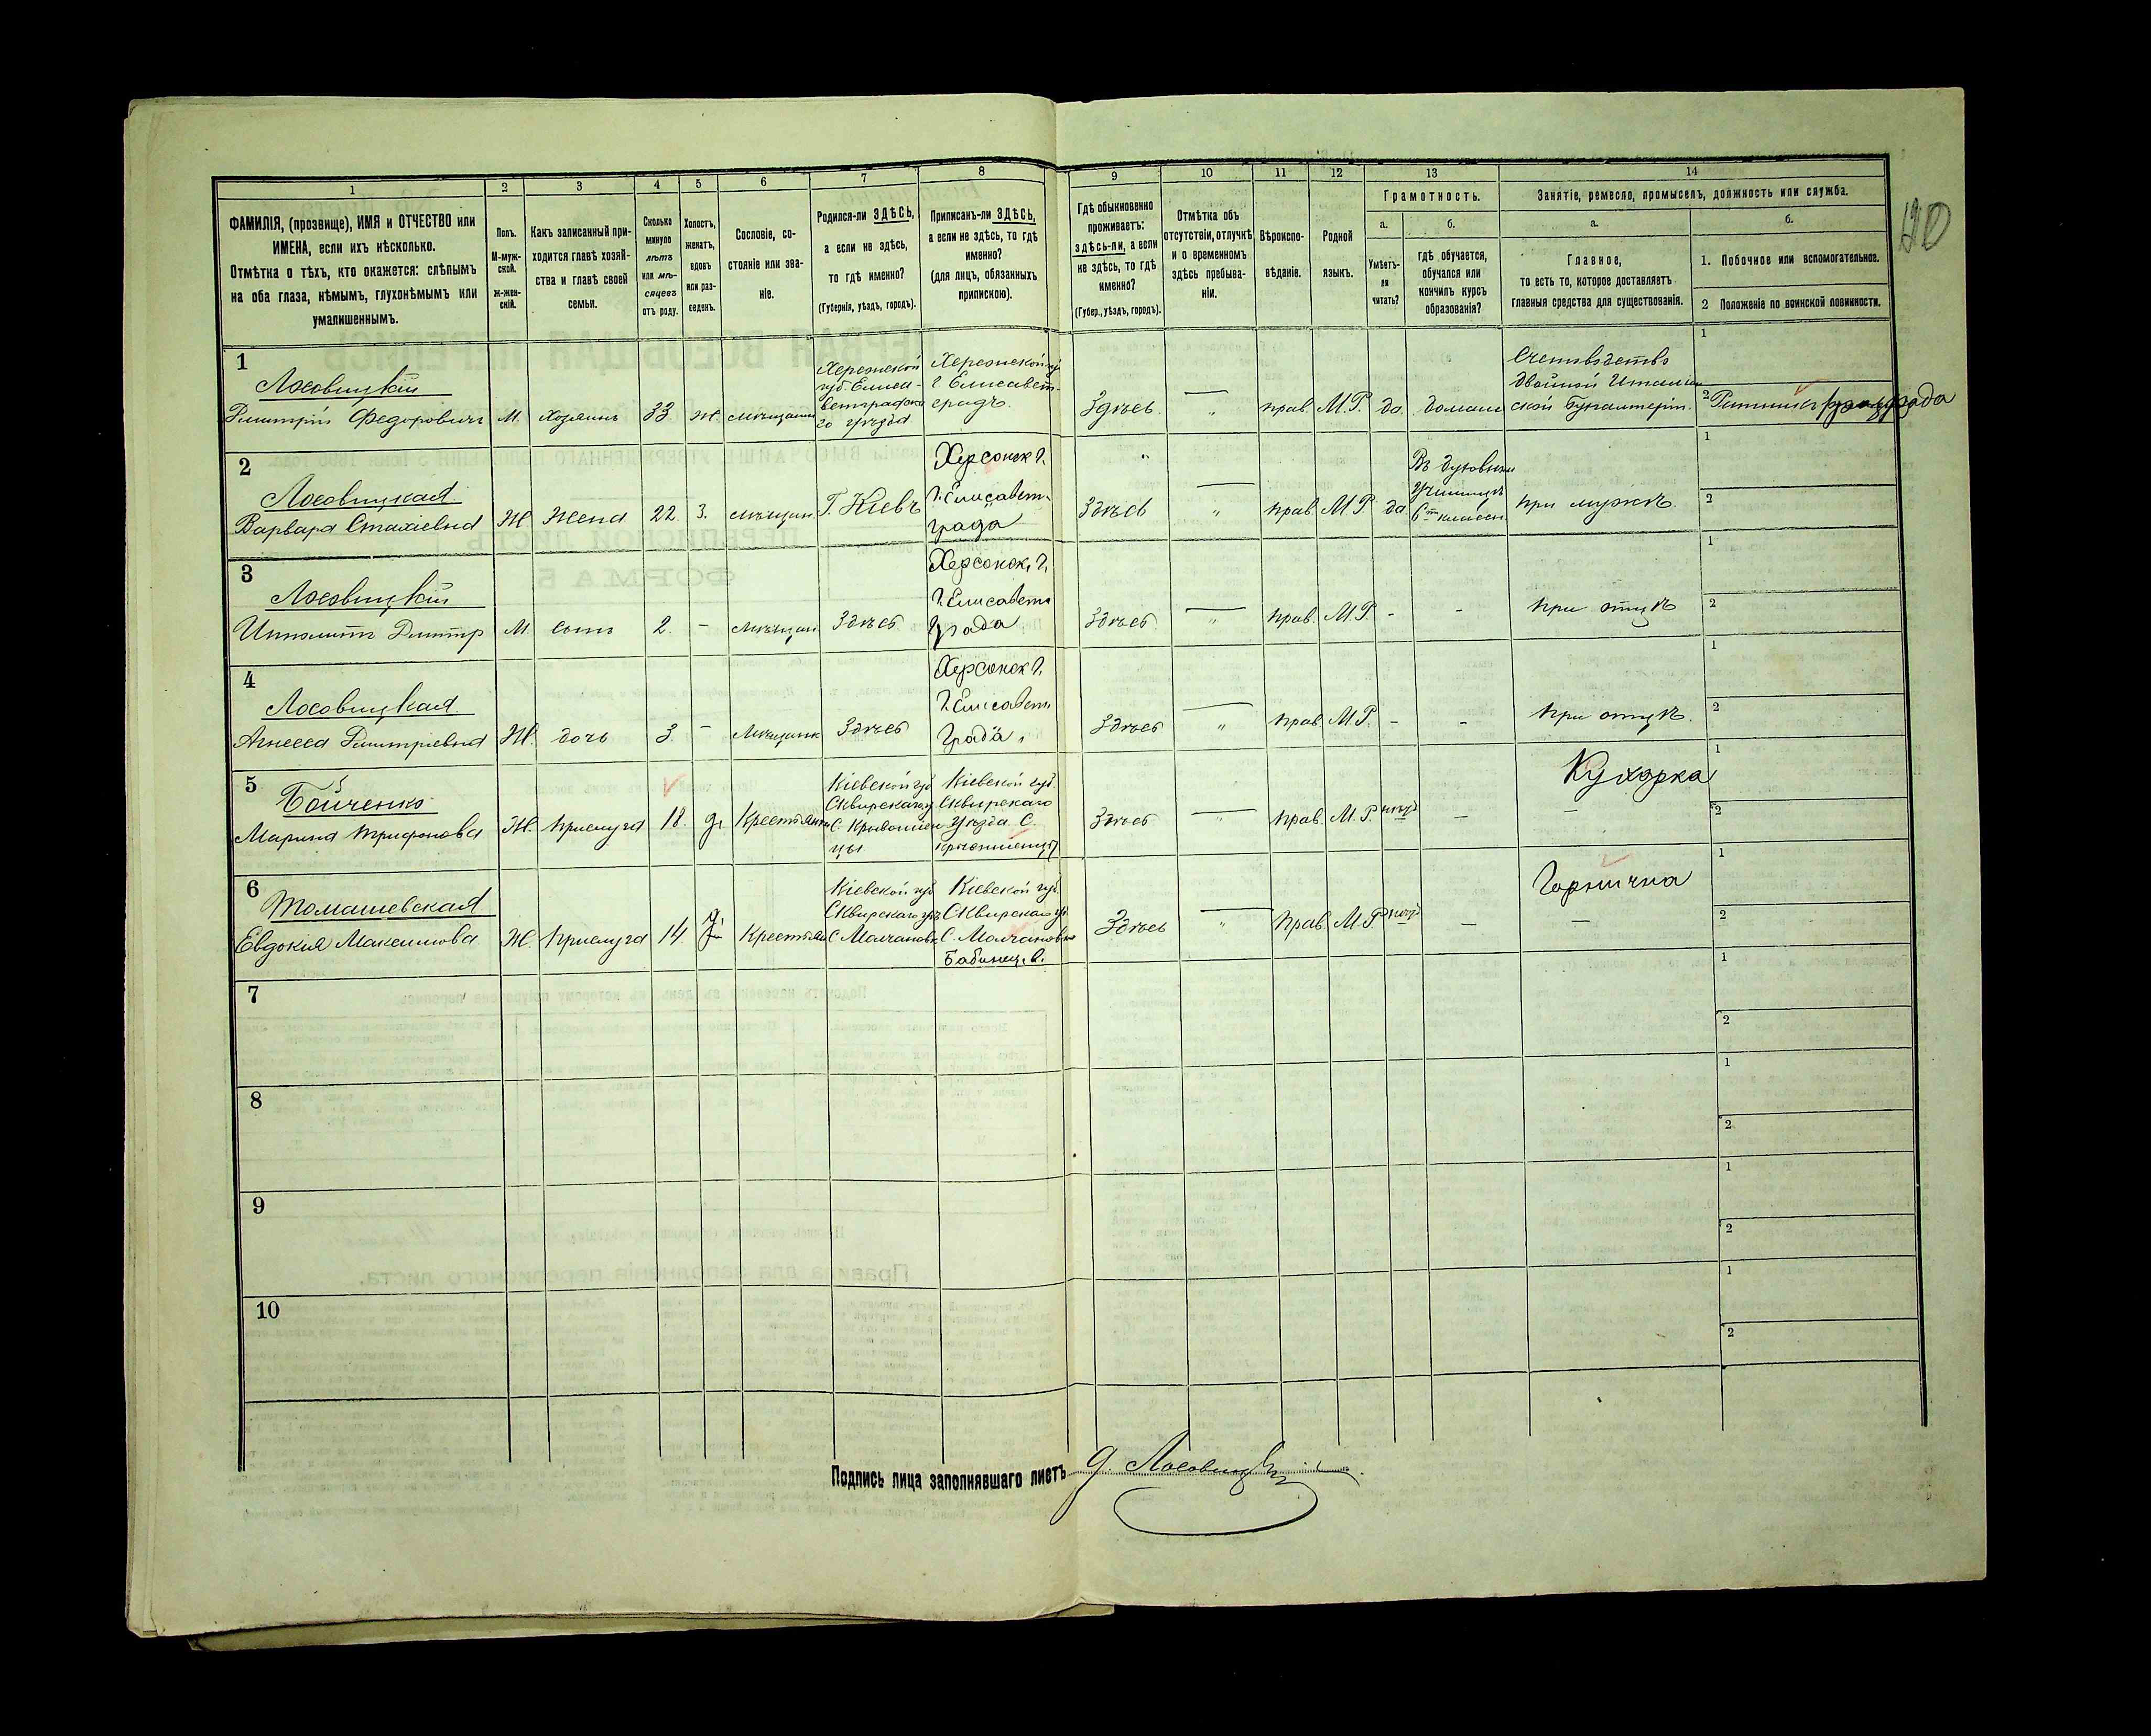 1 2 3 4 5 6 7 8 9 10 11 12 13 14
ФАМИЛІЯ, (прозвище), ИМЯ и ОТЧЕСТВО или
ИМЕНА, если ихъ нѣсколько.
Отмѣтка о тѣхъ, кто окажется: слѣпымъ
на оба глаза, нѣмымъ, глухонѣмымъ или
умалишеннымъ.
Полъ.
М-муж-
ской.
Ж-жен-
скій.
Какъ записанный при-
ходится главѣ хозяй-
ства и главѣ своей
семьи.
Сколько
минуло
лѣтъ
или мѣ-
сяцевъ
отъ роду.
Холостъ,
женатъ,
вдовъ
или раз-
веденъ.
Сословіе, со-
стояніе или зва-
ніе.
Родился-ли ЗДѢСЬ,
а если не здѣсь,
то гдѣ именно?
(Губернія, уѣздъ, городъ).
Приписанъ-ли ЗДѢСЬ,
а если не здѣсь, то гдѣ
именно?
(для лицъ, обязанныхъ
припискою).
Гдѣ обыкновенно
проживаетъ:
здѣсь-ли, а если
не здѣсь, то гдѣ
именно?
(Губер., уѣздъ, городъ).
Отмѣтка объ
отсутствіи, отлучкѣ
и о временномъ
здѣсь пребыва-
ніи.
Вѣроиспо-
вѣданіе.
Родной
языкъ.
Грамотность.
а.
Умѣетъ-
ли
читать?
б.
гдѣ обучается,
обучался или
кончилъ курсъ
образованія?
Занятіе, ремесло, промыселъ, должность или служба.
а.
Главное,
то есть то, которое доставляетъ
главныя средства для существованія.
б.
1. Побочное или вспомогательное.
2 Положеніе по воинской повинности.
190
1
Лосовицкій
Дмитрій Федоровичъ
М.
хозяинъ
33
ж.
мѣщанин
Херсонской
губ Елиса-
ветградска
го уѣзда
Херсонской гу
г Елисавет-
градъ.
Здѣсь.
"
прав.
М.Р.
да
домаш
Счетоводство
двойной Италіан
ской Бухалтеріи.
1
2 Ратникъ
2
Лосовицкая
Варвара Стахіевна
Ж
Жена
22.
З.
мѣщан.
Г. Кіевъ
Херсонск г.
г. Елисавет-
града
Здѣсь
"
прав.
М.Р.
да
Въ духовном
Училищѣ
6ти классн.
при мужѣ.
1
2
3
Лосовицкій
Ипполитъ Дмитр
М.
сынъ
2.
–
мѣщан.
Здѣсь
Херсонск. г.
г. Елисавет
града
Здѣсь
"
прав.
М.Р.
-
-
при отцѣ
1
2
4
Лосовицкая
Агнесса Дмитріевна
Ж.
дочь
3
–
Мѣщанк
Здѣсь
Херсонск г.
г. Елисавет
града
Здѣсь
"
прав.
М.Р.
-
-
при отцѣ.
1
2
5
Бойченко
Марина Трифонова
Ж.
прислуга
18.
д.
Крестьянка
Кіевской губ
Сквирскаго у
С. Кривошеи
цы
Кіевской губ.
Сквирскаго
Уѣзда С.
Кривошеицы
Здѣсь
"
прав.
М.Р.
нѣтъ
–
Кухарка
–
1
2
6
Томашевская
Евдокия Максимова
Ж.
прислуга
14.
д.
Крестьян
Кіевской губ
Сквирскаго уѣз
С Молчановк
Кіевской губ.
Сквирскаго уѣ
С. Молчановки
Бабинец. в.
Здѣсь
"
прав.
М.Р.
нѣтъ
–
Горнична
–
1
2
7
1
2
8
1
2
9
1
2
10
1
2
Подпись лица заполнявшаго листъ Д. Лосовицкій